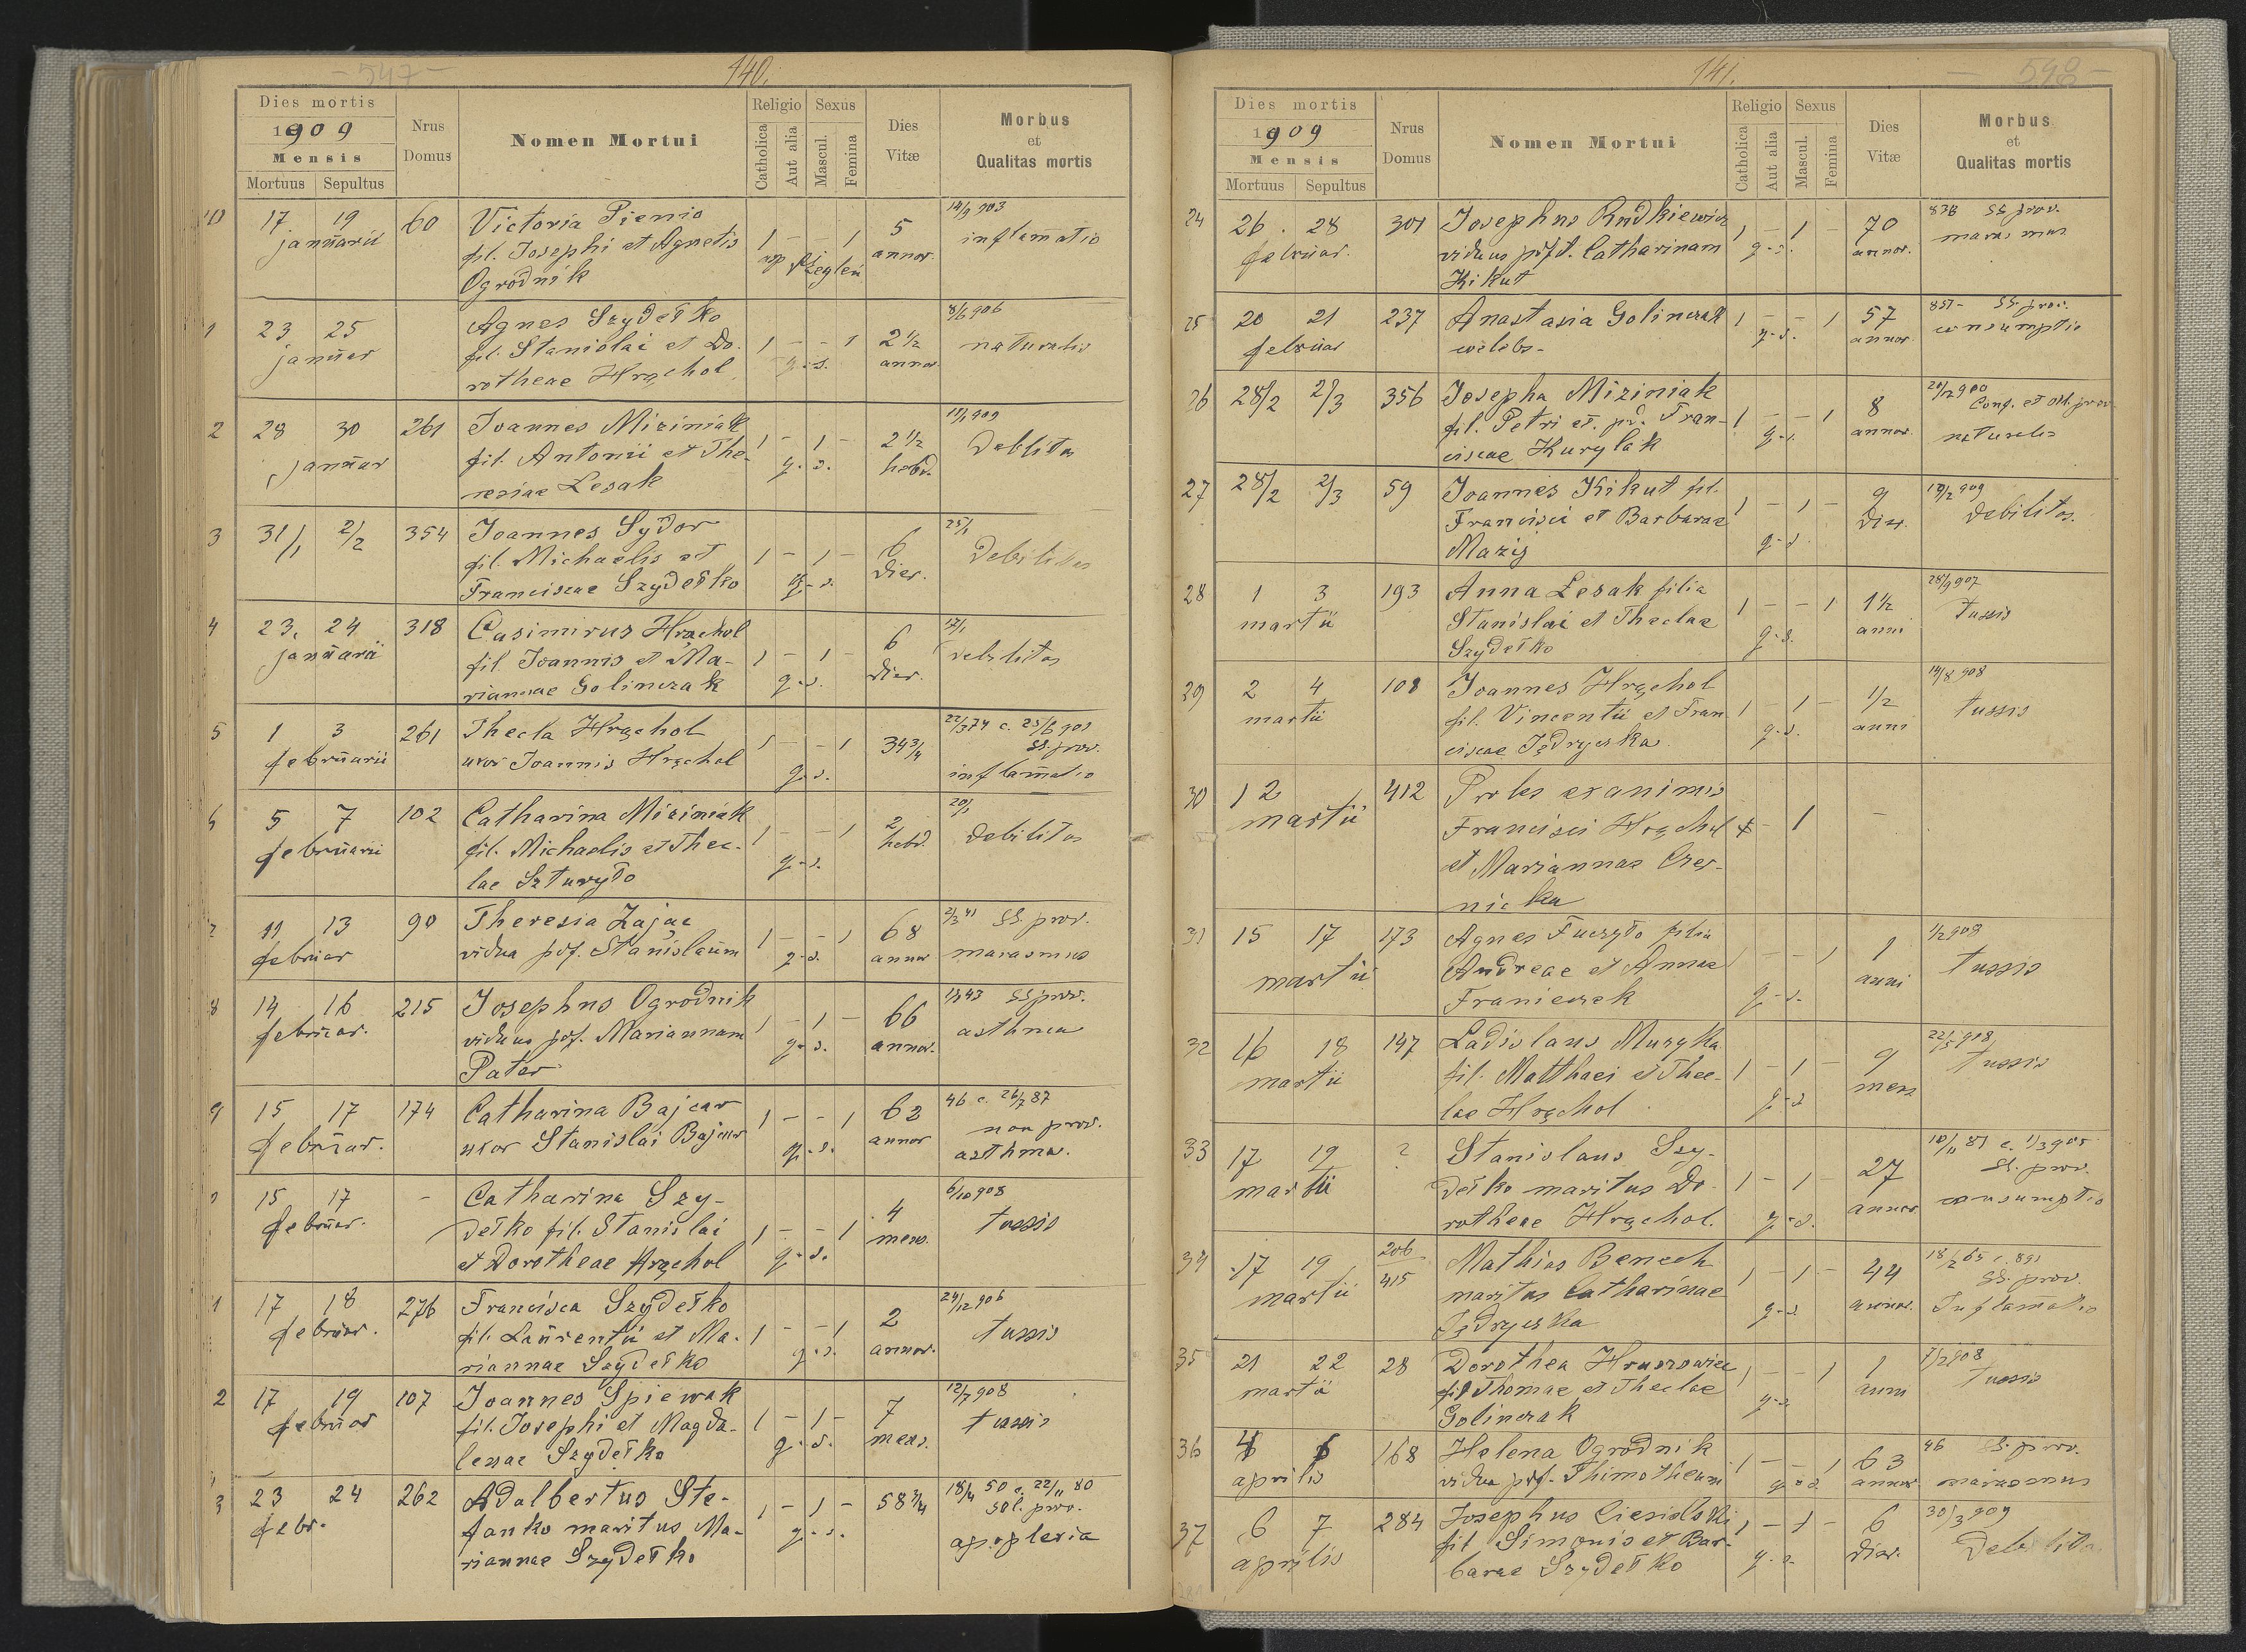 - 547 -
140.
Dies mortis
1909
Mensis
Mortuus Sepultus
Nrus Domus
Nomen Mortui
Religio
Catholica
Aut alia
Sexus
Mascul.
Femina
Dies Vitæ
Morbus
et
Qualitas mortis
10 17 19 januarii 60 Victoria Pienio 1 - - 1 5 annor. 14/9 903
fil. Josephi et Agnetis inflamatio
Ogrodnik
1 23 25 januar Agnes Szydełko 1 - - 1 2 1/2 annor. 8/6 906
fil. Stanislai et Do- q. s. naturalis
rotheae Hrąchol
2 28 30 januar 261 Joannes Miziniak 1 - 1 - 2 1/2 hebd. 11/1 909
fil. Antonii et The- q. s. Deblitas
resiae Lesak
3 31/1 2/2 354 Joannes Sydor 1 - 1 - 6 dier. 25/1
fil. Michaelis et q. s. Debilitas
Franciscae Szydełko
4 23. 24 januarii 318 Casimirus Hrąchol 1 - 1 - 6 dier. 17/1
fil. Joannis et Ma- q. s. debilitas
riannae Golinczak
5 1 3 februarii 261 Thecla Hrąchol 1 - - 1 34 3/4 22/3 74 c. 25/6 901
uxor Joannis Hrąchol q. s. SS. prov.
inflamatio
6 5 7 februarii 102 Catharina Miziniak 1 - - 1 2 hebd. 20/1
fil. Michaelis et Thec- q. s. debilitas
lae Szturyło
7 11 13 februar 90 Theresia Zając 1 - - 1 68 annor 2/3 41 SS. prov.
vidua pdf. Stanislaum q. s. marasmus
8 14 16 februar. 215 Josephus Ogrodnik 1 - 1 - 66 annor. 43 SS prov.
viduus pdf. Mariannam q. s. asthma
Pater
9 15 17 februar. 174 Catharina Bajcar 1 - - 1 62 annor 46 c. 26/7 87
uxor Stanislai Bajcar q. s. non prov.
asthma.
15 17 februar. - Catharina Szy- 1 - - 1 4 mens. 6/10 908
dełko fil. Stanislai q. s. tussis
et Dorotheae Hrąchol
1 17 18 februar. 276 Francisca Szydełko 1 - - 1 2 annor. 24/12 906
fil. Laurentii et Ma- q. s. tussis
riannae Szydełko
2 17 19 februar 107 Joannes Spiewak 1 - 1 - 7 mens. 12/7 908
fil. Josephi et Magda- q. s. tussis
lenae Szydełko
3 23 24 febr. 262 Adalbertus Ste- 1 - 1 - 58 3/4 18/4 50 c. 22/11 80
fanko maritus Ma- q. s. prov.
riannae Szydełko apoplexia
141.
- 548 -
Dies mortis
1909
Mensis
Mortuus Sepultus
Nrus Domus
Nomen Mortui
Religio
Catholica
Aut alia
Sexus
Mascul.
Femina
Dies Vitæ
Morbus
et
Qualitas mortis
24 26. 28 februar. 301 Josephus Rudkiewicz 1 - 1 - 70 annor. 838 SS prov.
viduus pdf. Catharinam q. s. marasmus
Kikut
25 20 21 februar 237 Anastasia Golinczak 1 - - 1 57 annor. SS. prov.
coelebs. q. s. consumptio
26 28/2 2/3 356 Josepha Miziniak 1 - - 1 8 annor. 20/2 900
fil. Petri et pd. Fran- q. s. naturalis
ciscae Kurylak
27 28/2 2/3 59 Joannes Kikut fil. 1 - 1 - 9 dier. 19/2 909
Francisci et Barbarae q. s. debilitas.
Mazij
28 1 3 martii 193 Anna Lesak filia 1 - - 1 1 1/2 anni 28/9 907
Stanislai et Theclae q. s. tussis
Szydełko
29 2 4 martii 108 Joannes Hrąchol 1 - 1 - 1/2 anni 14/8 908
fil. Vincentii et Fran- q. s. tussis
ciscae Jędryczka
30 12 martii 412 Proles exanimis - 1 -
Francisci Hrąchol
et Mariannae Czer-
nicka
31 15 17 martii 173 Agnes Fuczyło filia - - 1 1 anni 1/2 908
Andreae et Annae q. s. tussis
Franiczek
32 16 18 martii 147 Ladislaus Muzyka 1 - 1 - 9 mens 22/5 908
fil. Matthaei et Thec- q. s. tussis
lae Hrąchol
33 17 19 martii ? Stanislaus Szy- 1 - 1 - 27 annor 10/11 81 c. 1/3 905
dełko maritus Do- q. s. SS. prov.
rotheae Hrąchol. consumptio
34 17 19 martii 206 415 Mathias Benech 1 - 1 - 44 annor. 18/2 65 c. 891
maritus Catharinae q. s. SS. prov.
Jędryczka Inflamatio
35 21 22 martii 28 Dorothea Hruszowiec 1 - - 1 1 anni 7/2 908
fil Thomae et Theclae q. s. tussis
Golinczak
36 4 6 aprilis 168 Helena Ogrodnik 1 - - 1 63 annor 46 SS. prov.
vidua pdf. Thimotheum q. s. marasmus
37 6 7 aprilis 284 Josephus Ciesielski 1 - 1 - 6 dier. 30/3 909
fil. Simonis et Bar- q. s. Debilitas
barae Szydełko